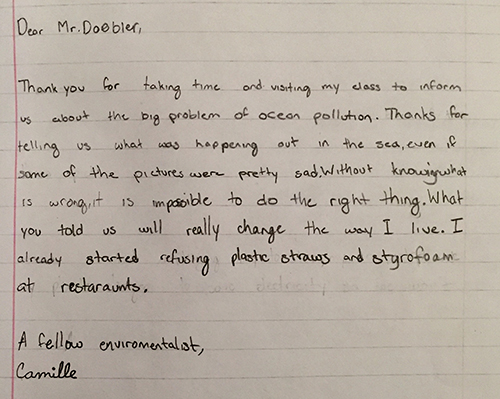 Dear Mr. Doebler,
Thank you for taking time and visiting my class to inform
us about the big problem of ocean pollution. Thanks for
telling us what was happening out in the sea, even if
some of the pictures were pretty sad. Without knowig what
is wrong, it is impossible to do the right thing. What
you told us will really change the way I live. I
already started refusing plastic straws and styrofoam
at restaraunts.
A fellow enviromentalist,
Camille